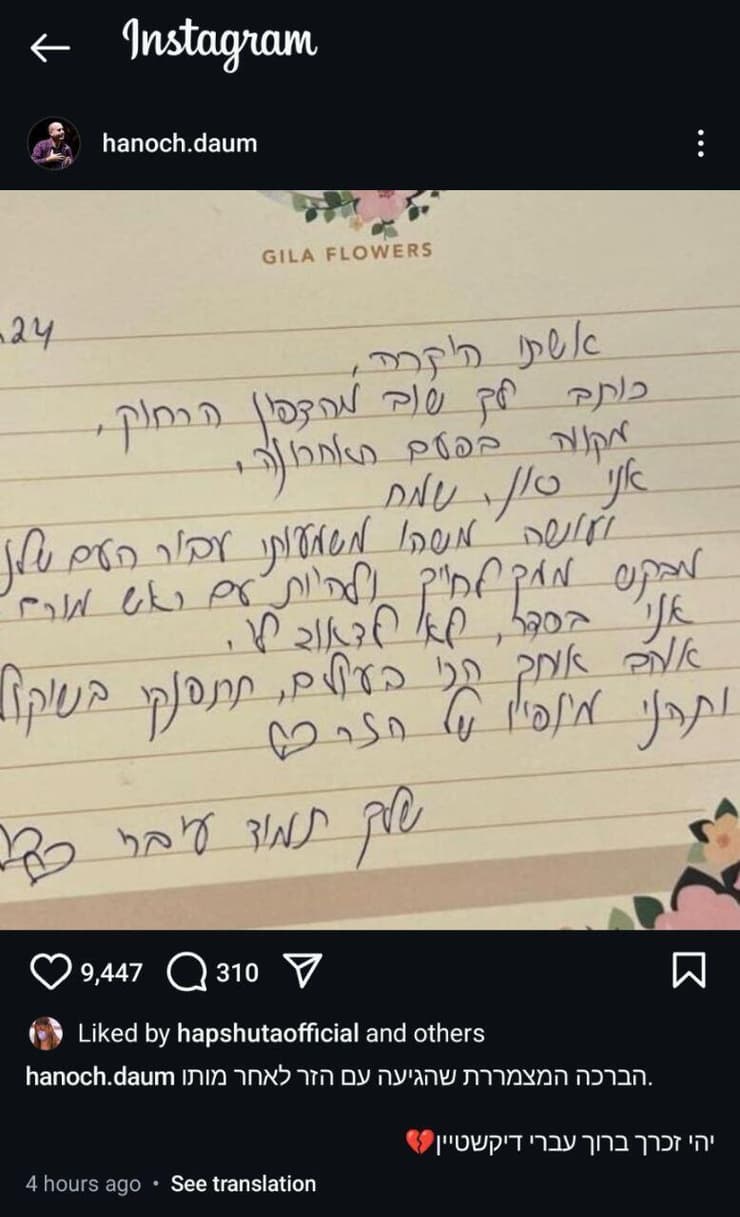 Instagram
hanoch.daum
GILA FLOWERS
24
אשתי היקרה,
כותב לך שוב מהצפון הרחוק,
מקווה בפעם האחרונה,
אני מוגן, שמח
ועושה משהו משמעותי עבור העם שלנו
מבקש ממך לחייך ולהיות עם ראש מורם
אני בסדר, לא לדאוג לי.
אוהב אותך הכי בעולם, תתפנקי בשוקולד
ותהני מהפיו של הזר
שלך תמיד עיברי
9,447 310
Liked by hapshutaofficial and others
hanoch.daum הברכה המצמררת שהגיעה עם הזר לאחר מותו.
יהי זכרך ברוך עברי דיקשטיין💔
4 hours ago • See translation